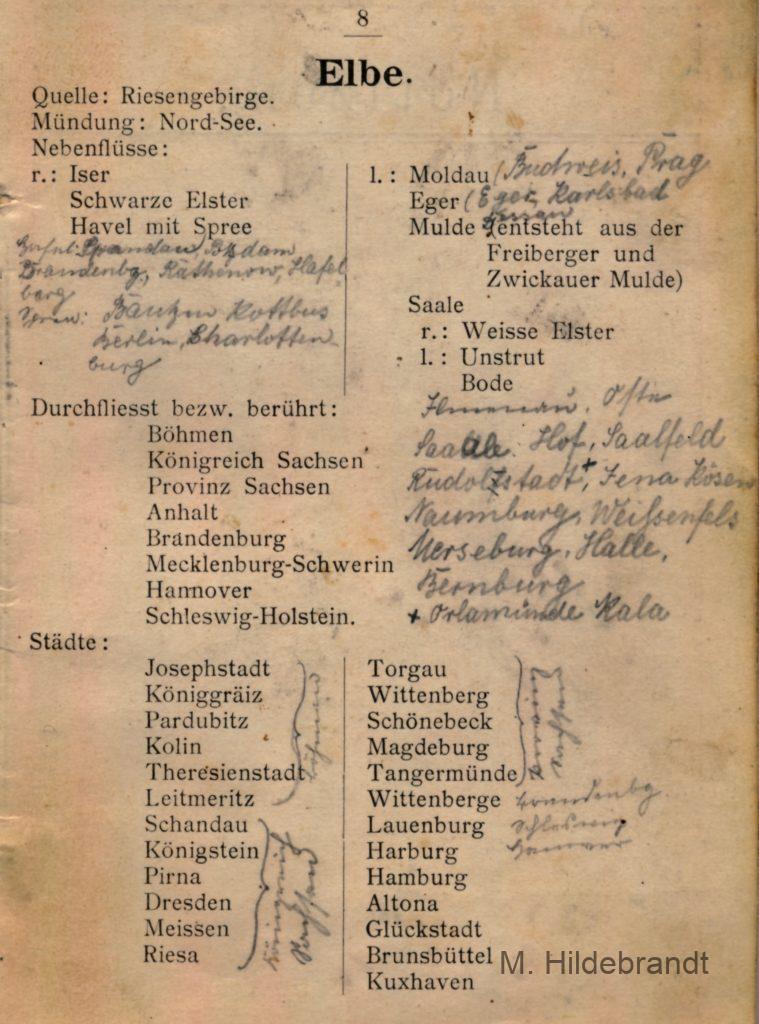 8
Elbe.
Quelle: Riesengebirge.
Mündung: Nord-See.
Nebenflüsse:
r.: Iser
Schwarze Elster
Havel mit Spree
Spandau
Brandenbg, Rathenow, Hafel
berg
Spree: Bautzen Kottbus
Berlin, Charlotten
burg
l.: Moldau (Budweis, Prag
Eger (Eger, Karlsbad
Mulde (entsteht aus der
Freiberger und
Zwickauer Mulde)
Saale
r.: Weisse Elster
l.: Unstrut
Bode
Ilmenau. Oste
Saale. Hof, Saalfeld
Rudolstadt +, Jena Kösen
Naumburg, Weißenfels
Merseburg, Halle,
Bernburg
+ Orlamünde Kala
Durchfliesst bezw. berührt:
Böhmen
Königreich Sachsen
Provinz Sachsen
Anhalt
Brandenburg
Mecklenburg-Schwerin
Hannover
Schleswig-Holstein.
Städte:
Josephstadt
Königgräiz
Pardubitz
Kolin
Theresienstadt
Leitmeritz
Böhmen
Schandau
Königstein
Pirna
Dresden
Meissen
Riesa
Königreich
Sachsen
Torgau
Wittenberg
Schönebeck
Magdeburg
Tangermünde
Provinz
Sachsen
Wittenberge Brandenbg.
Lauenburg Schleswig
Harburg Hannover
Hamburg
Altona
Glückstadt
Brunsbüttel
Kuxhaven
M. Hildebrandt